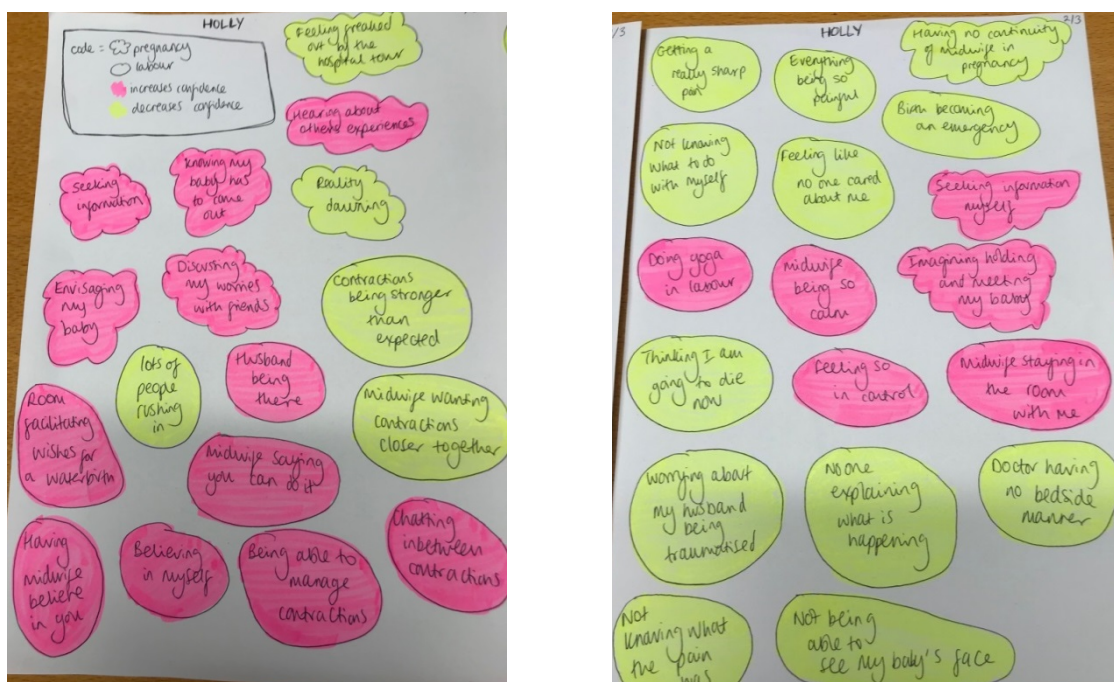 HOLLY
code = pregnancy
labour
increases confidence
decreases confidence
Feeling freaked
out by the
hospital tour
Hearing about
others experiences
Seeking
information
Knowing my
baby has
to come
out
Reality
dawning
Envisaging
my
baby
Discussing
my worries
with friends
Contractions
being stronger
than
expected
lots of
people
rushing
in
Husband
being
there
Room
facilitating
wishes for
a waterbirth
Midwife wanting
contractions
closer together
Midwife saying
you can do it
Having
midwife
believe
in you
Believing
in myself
Being able to
manage
contractions
Chatting
inbetween
contractions
/3
HOLLY
2/3
Getting a
really sharp
pain
Everything
being so
painful
Having no continuity
of midwife in
pregnancy
Birth becoming
an emergency
Not knowing
what to do
with myself
Feeling like
no one cared
about me
Seeking information
myself
Doing yoga
in labour
midwife
being so
calm
Imagining holding
and meeting
my baby
Thinking I am
going to die
now
Feeling so
in control
Midwife staying in
the room
with me
Worrying about
my husband
being
traumatised
No one
explaining
what is
happening
Doctor having
no bedside
manner
Not
knowing what
the pain
was
Not being
able to
see my baby's face